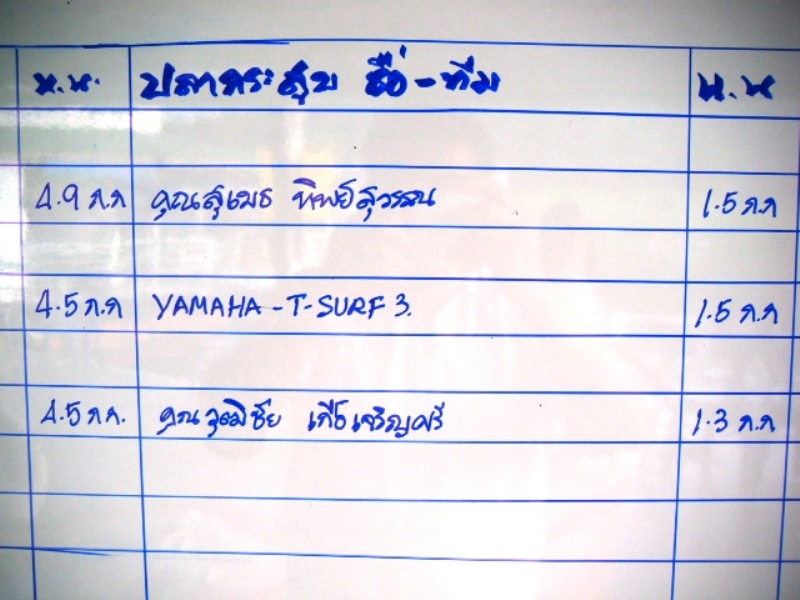 น.น. ปลากระสูบ ชื่อ-ทีม น.น
4.9 ก.ก คุณสุเมธ ทิพย์สุวรรณ 1.5 ก.ก
4.5 ก.ก YAMAHA-T-SURF 3. 1.5 ก.ก
4.5 ก.ก. คุณวุฒิชัย 1.3 ก.ก